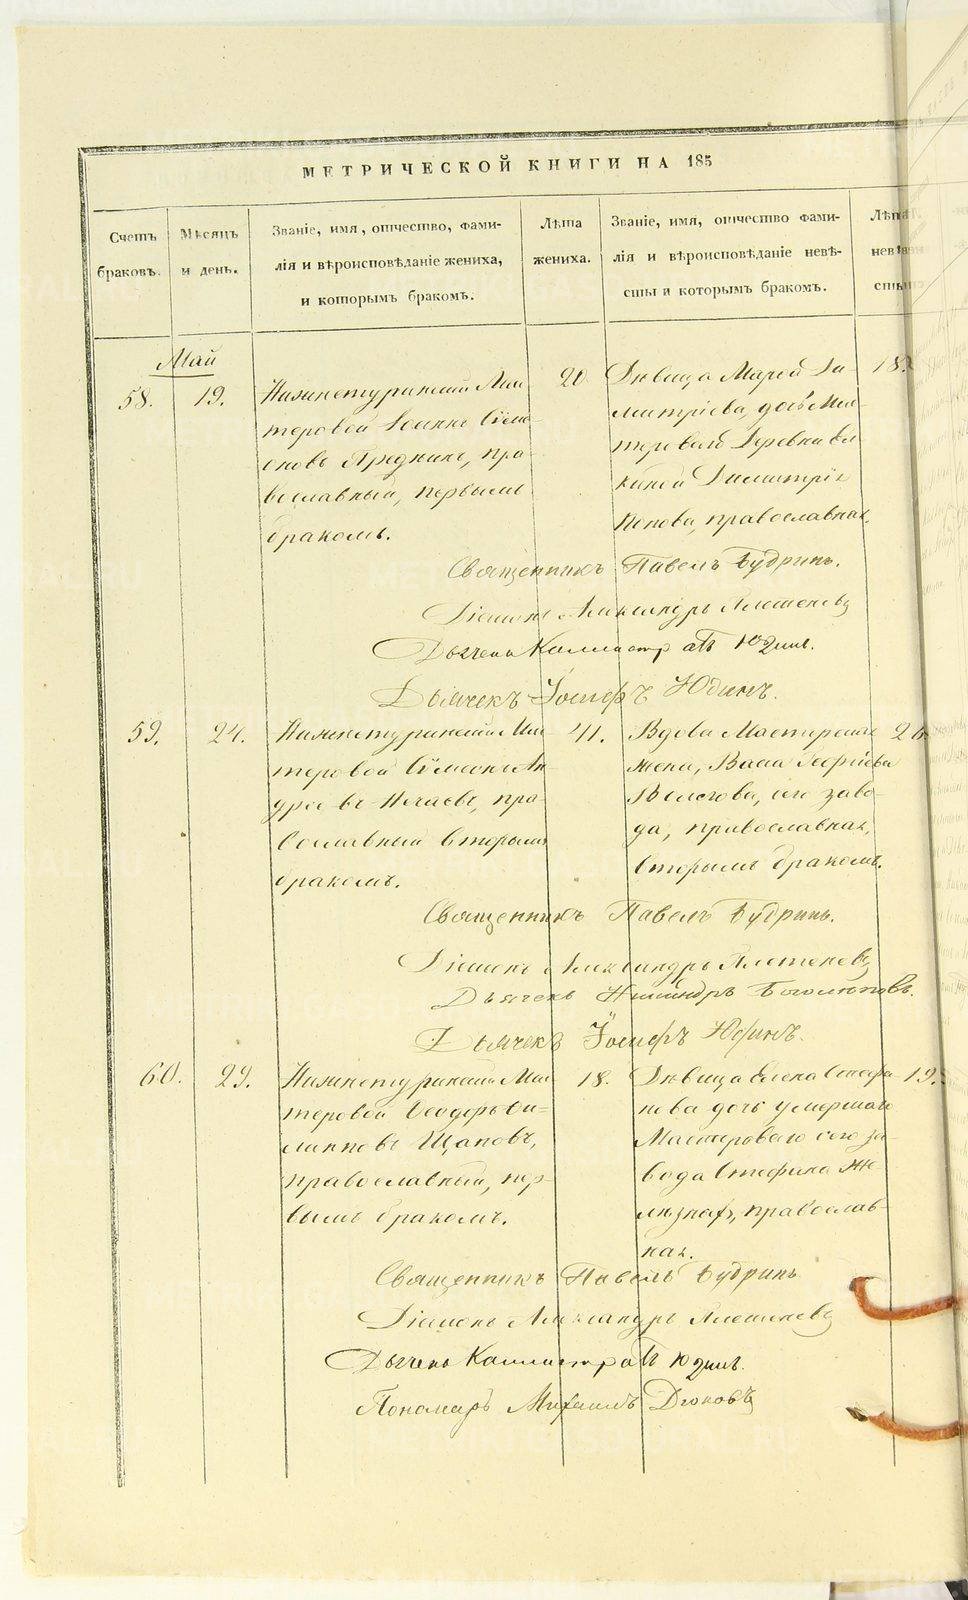 МЕТРИЧЕСКОЙ КНИГИ НА 185
Счетъ браковъ.
Мѣсяцъ и день.
Званіе, имя, отчество, фами-
лія и вѣроисповѣданіе жениха,
и которымъ бракомъ.
Лѣта жениха.
Званіе, имя, отчество фами-
лія и вѣроисповѣданіе невѣ-
сты и которымъ бракомъ.
Лѣта невѣ-
сты
Май
58. 19.
Нижнетуринскій Мас
теровой Іоаннъ Сѵме
оновъ пра
вославный, первымъ
бракомъ.
20
Дѣвица Марѳа Ди-
митріева, дочь Мас
тероваго Деревни Ел
киной Димитрія
Попова, православная.
18.
Священникъ Павелъ Будринъ.
Діаконъ Александръ Плотниковъ
Дьячекъ Каллистратъ Юдинъ.
Дьячекъ Іосифъ Юдинъ.
59. 24.
Нижнетуринскій Мас
теровой Сѵмеонъ Ан
дреевъ Нечаевъ, пра-
вославный вторымъ
бракомъ.
41.
Вдова Мастерская
жена, Васса Георгіева
сего заво-
да, православная,
вторымъ бракомъ.
26
Священникъ Павелъ Будринъ.
Діаконъ Александръ Плотниковъ
Дьячекъ Никандръ Боголѣповъ.
Дьячекъ Іосифъ Юдинъ.
60. 29.
Нижнетуринскій Мас
теровой Ѳеодоръ Фи-
липповъ Щаповъ,
православный, пер-
вымъ бракомъ.
18.
Дѣвица Елена Стефа
нова дочь умершаго
Мастероваго сего за-
вода Стефана
православ-
ная.
19.
Священникъ Павелъ Будринъ
Діаконъ Александръ Плотниковъ
Дьячекъ Каллистратъ Юдинъ.
Пономарь Михаилъ Дягоновъ